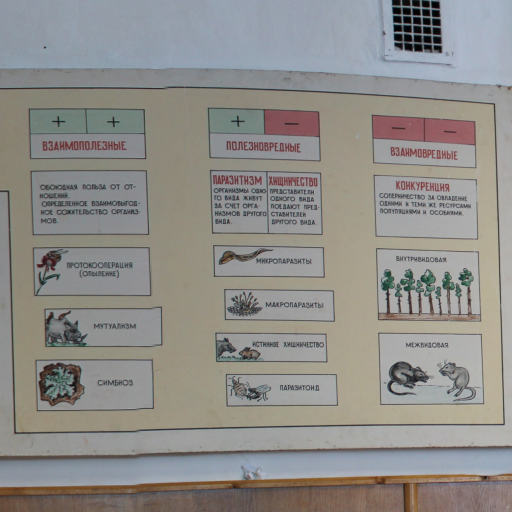 + +
ВЗАИМОПОЛЕЗНЫЕ
ОБОЮДНАЯ ПОЛЬЗА ОТ ОТ-
НОШЕНИЙ.
ОПРЕДЕЛЕННОЕ ВЗАИМОВЫГОД-
НОЕ СОЖИТЕЛЬСТВО ОРГАНИЗ-
МОВ.
ПРОТОКООПЕРАЦИЯ
(ОПЫЛЕНИЕ)
МУТУАЛИЗМ
СИМБИОЗ
+ −
ПОЛЕЗНОВРЕДНЫЕ
ПАРАЗИТИЗМ
ОРГАНИЗМЫ ОДНО-
ГО ВИДА ЖИВУТ
ЗА СЧЕТ ОРГА-
НИЗМОВ ДРУГОГО
ВИДА.
ХИЩНИЧЕСТВО
ПРЕДСТАВИТЕЛИ
ОДНОГО ВИДА
ПОЕДАЮТ ПРЕД-
СТАВИТЕЛЕЙ
ДРУГОГО ВИДА.
МИКРОПАРАЗИТЫ
МАКРОПАРАЗИТЫ
ИСТИННОЕ ХИЩНИЧЕСТВО
ПАРАЗИТОИД
− −
ВЗАИМОВРЕДНЫЕ
КОНКУРЕНЦИЯ
СОПЕРНИЧЕСТВО ЗА ОВЛАДЕНИЕ
ОДНИМИ И ТЕМИ ЖЕ РЕСУРСАМИ
ПОПУЛЯЦИЯМИ И ОСОБЯМИ.
ВНУТРИВИДОВАЯ
МЕЖВИДОВАЯ